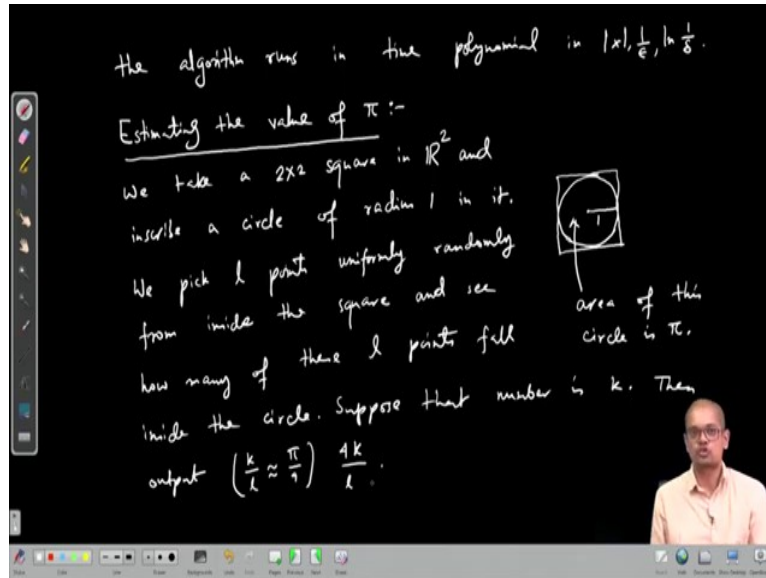 the algorithm runs in time polynomial in |x|, 1/ε, ln 1/δ.
Estimating the value of π :-
We take a 2x2 square in ℝ² and
inscribe a circle of radius 1 in it.
We pick l points uniformly randomly
from inside the square and see
how many of these l points fall
inside the circle. Suppose that number is k. Then
output (k/l ≈ π/4) 4k/l.
1
area of this
circle is π.